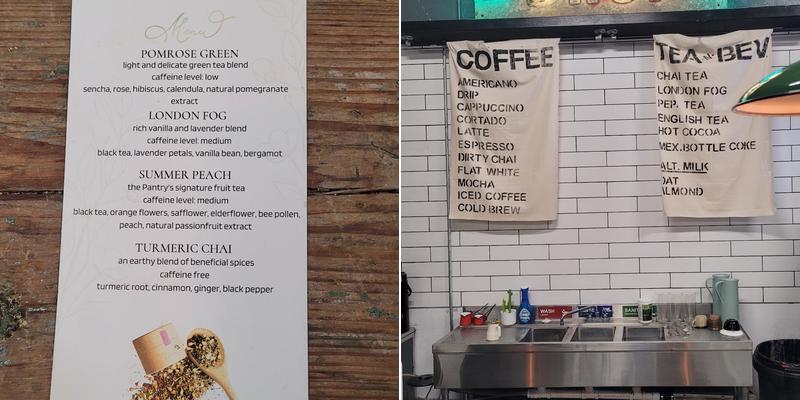 Menu
POMROSE GREEN
light and delicate green tea blend
caffeine level: low
sencha, rose, hibiscus, calendula, natural pomegranate
extract
LONDON FOG
rich vanilla and lavender blend
caffeine level: medium
black tea, lavender petals, vanilla bean, bergamot
SUMMER PEACH
the Pantry's signature fruit tea
caffeine level: medium
black tea, orange flowers, safflower, elderflower, bee pollen,
peach, natural passionfruit extract
TURMERIC CHAI
an earthy blend of beneficial spices
caffeine free
turmeric root, cinnamon, ginger, black pepper
COFFEE
AMERICANO
DRIP
CAPPUCCINO
CORTADO
LATTE
ESPRESSO
DIRTY CHAI
FLAT WHITE
MOCHA
ICED COFFEE
COLD BREW
TEA BEV
CHAI TEA
LONDON FOG
PEP. TEA
ENGLISH TEA
HOT COCOA
MEX.BOTTLE COKE
ALT. MILK
OAT
ALMOND
WASH